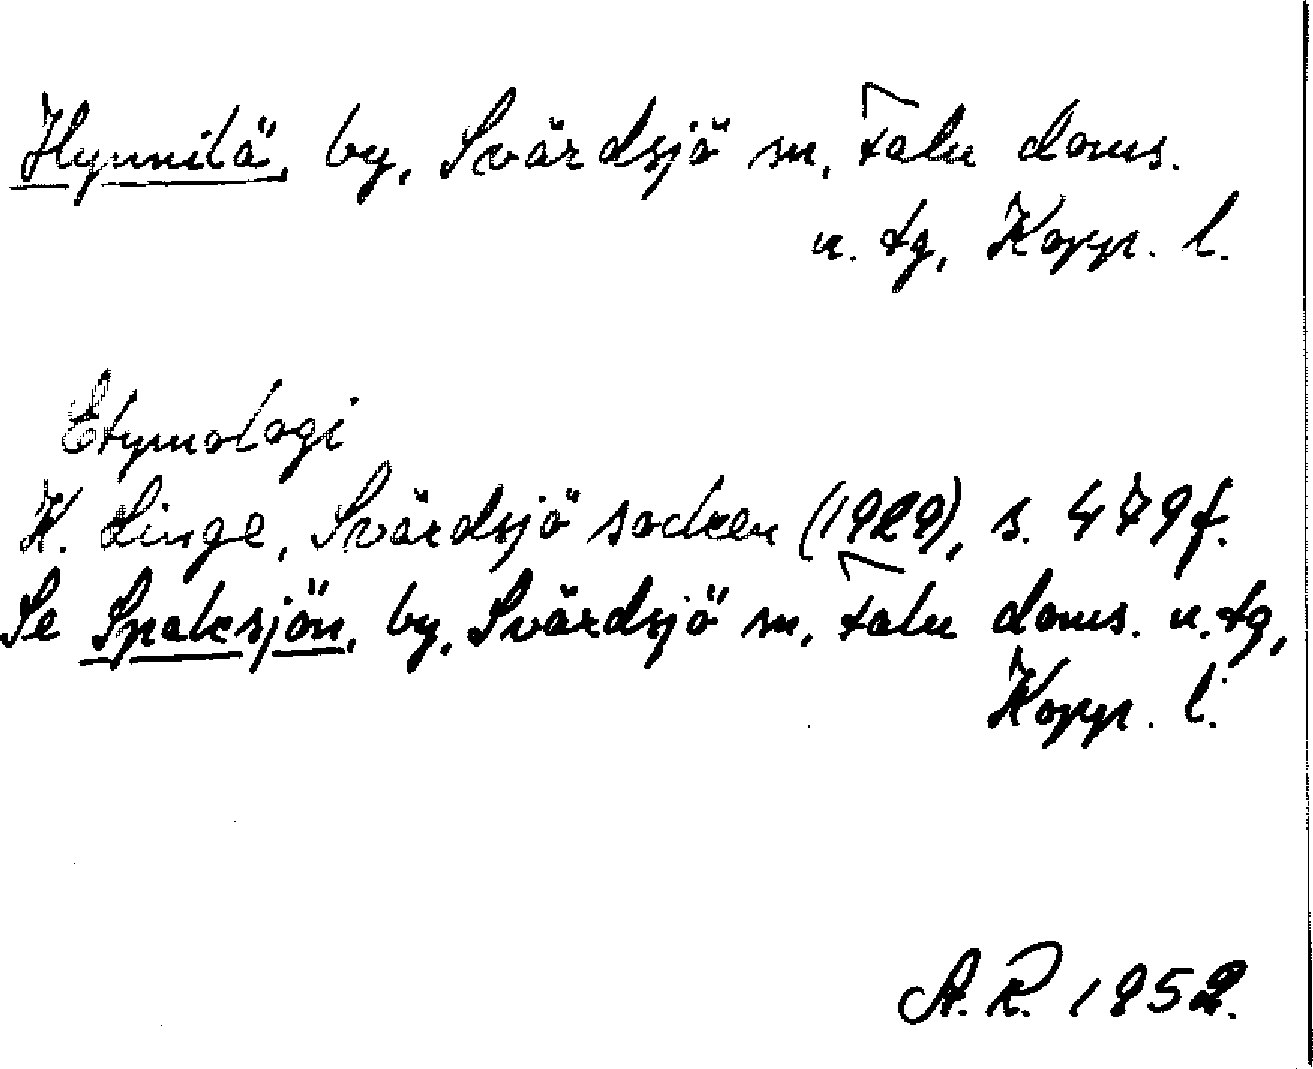 Hynnilä, by, Svärdsjö sn, Falu doms.
u. tg, Kopp. l.
Etymologi
K. Linge, Svärdsjö socken (1929), s. 479 f.
Se Spaksjön, by, Svärdsjö sn, Falu doms. u. tg,
Kopp. l.
A.R. 1952.